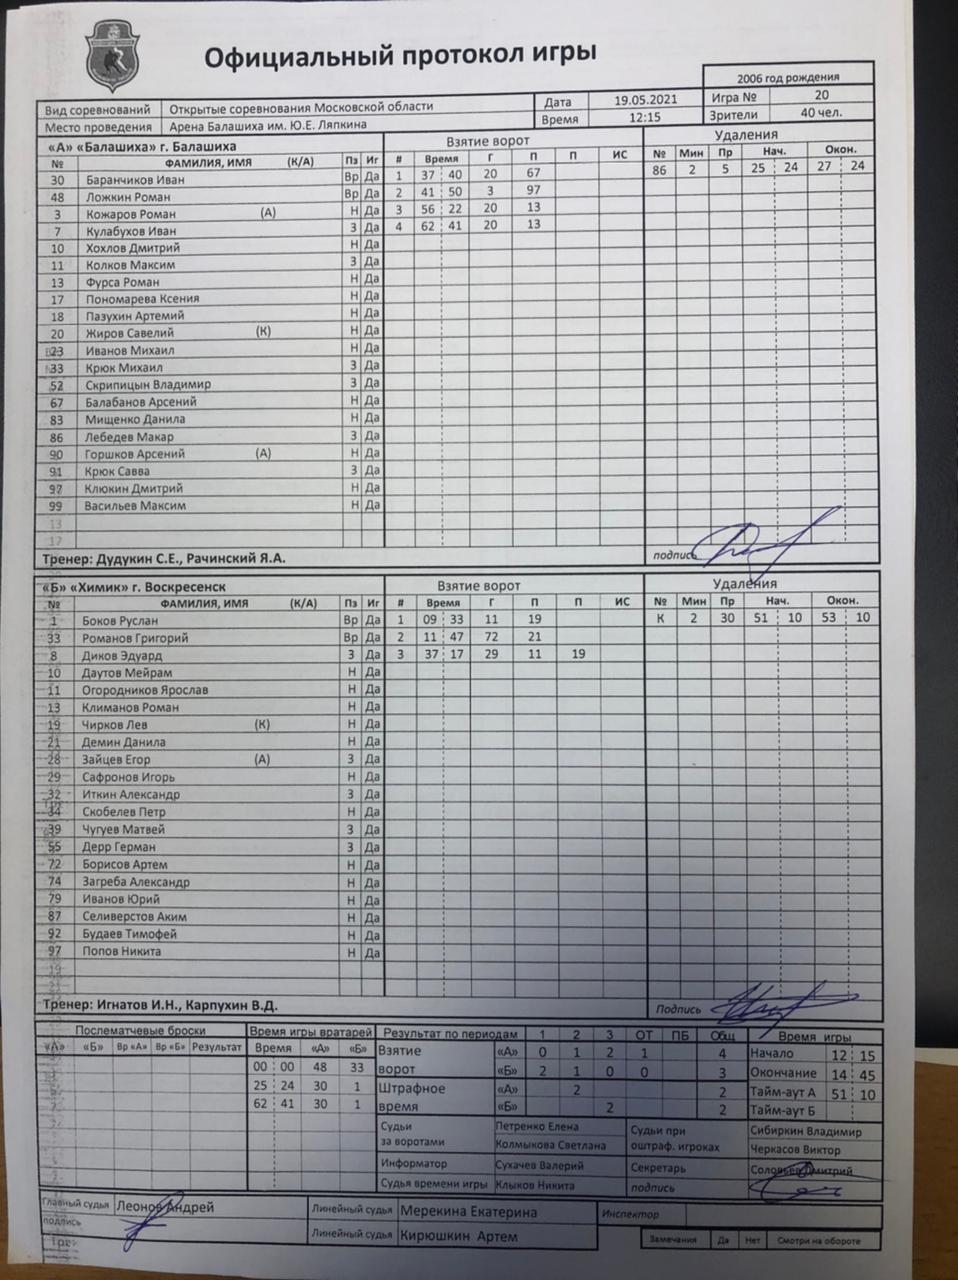 Официальный протокол игры
2006 год рождения
Вид соревнований Открытые соревнования Московской области Дата 19.05.2021 Игра № 20
Место проведения Арена Балашиха им. Ю.Е. Ляпкина Время 12:15 Зрители 40 чел.
«А» «Балашиха» г. Балашиха Взятие ворот Удаления
№ ФАМИЛИЯ, ИМЯ (К/А) Пз Иг # Время Г П П ИС № Мин Пр Нач. Окон.
30 Баранчиков Иван Вр Да 1 37 40 20 67 86 2 5 25 24 27 24
48 Ложкин Роман Вр Да 2 41 50 3 97
3 Кожаров Роман (А) Н Да 3 56 22 20 13
7 Кулабухов Иван З Да 4 62 41 20 13
10 Хохлов Дмитрий Н Да
11 Колков Максим З Да
13 Фурса Роман Н Да
17 Пономарева Ксения Н Да
18 Пазухин Артемий Н Да
20 Жиров Савелий (К) Н Да
23 Иванов Михаил Н Да
33 Крюк Михаил З Да
52 Скрипицын Владимир З Да
67 Балабанов Арсений Н Да
83 Мищенко Данила Н Да
86 Лебедев Макар З Да
90 Горшков Арсений (А) Н Да
91 Крюк Савва З Да
97 Клюкин Дмитрий Н Да
99 Васильев Максим Н Да
13
17
Тренер: Дудукин С.Е., Рачинский Я.А. подпись
«Б» «Химик» г. Воскресенск Взятие ворот Удаления
№ ФАМИЛИЯ, ИМЯ (К/А) Пз Иг # Время Г П П ИС № Мин Пр Нач. Окон.
1 Боков Руслан Вр Да 1 09 33 11 19 К 2 30 51 10 53 10
33 Романов Григорий Вр Да 2 11 47 72 21
8 Диков Эдуард З Да 3 37 17 29 11 19
10 Даутов Мейрам Н Да
11 Огородников Ярослав Н Да
13 Климанов Роман Н Да
19 Чирков Лев (К) Н Да
21 Демин Данила Н Да
28 Зайцев Егор (А) З Да
29 Сафронов Игорь Н Да
32 Иткин Александр З Да
34 Скобелев Петр Н Да
39 Чугуев Матвей З Да
55 Дерр Герман З Да
72 Борисов Артем Н Да
74 Загреба Александр Н Да
79 Иванов Юрий Н Да
87 Селиверстов Аким Н Да
92 Будаев Тимофей Н Да
97 Попов Никита Н Да
Тренер: Игнатов И.Н., Карпухин В.Д. Подпись
Послематчевые броски Время игры вратарей Результат по периодам 1 2 3 ОТ ПБ Общ Время игры
«А» «Б» Вр «А» Вр «Б» Результат Время «А» «Б» Взятие ворот «А» 0 1 2 1 4 Начало 12 15
00 00 48 33 «Б» 2 1 0 0 3 Окончание 14 45
25 24 30 1 Штрафное время «А» 2 2 Тайм-аут А 51 10
62 41 30 1 «Б» 2 2 Тайм-аут Б
Судьи за воротами Петренко Елена Судьи при оштраф. игроках Сибиркин Владимир
Колмыкова Светлана Черкасов Виктор
Информатор Сухачев Валерий Секретарь Соловьев Дмитрий
Судья времени игры Клыков Никита подпись
Главный судья Леонов Андрей Линейный судья Мерекина Екатерина Инспектор
подпись Линейный судья Кирюшкин Артем Замечания Да Нет Смотри на обороте